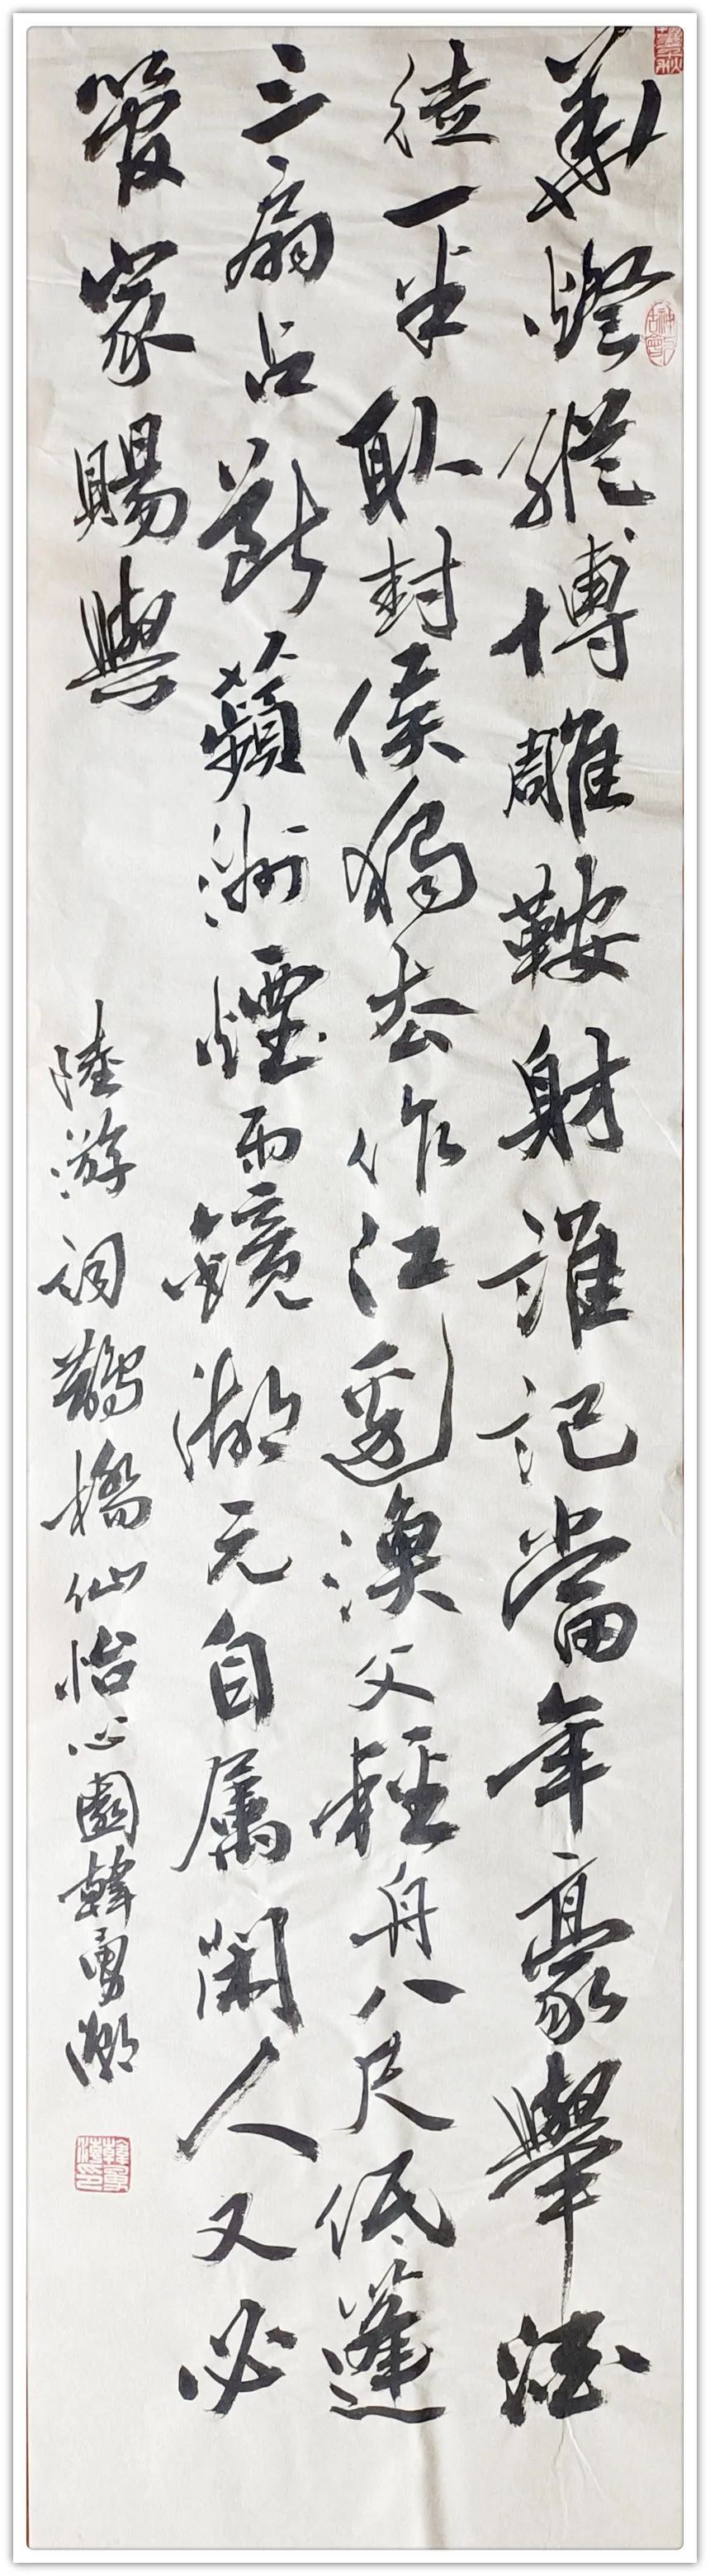 華燈縱博雕鞍射誰記當年豪舉酒
徒一半取封侯獨去作江邊漁父輕舟八尺低篷
三扇占斷蘋洲煙雨鏡湖元自屬閑人又必
管家賜與
陸游詞鵲橋仙怡心園韓勇